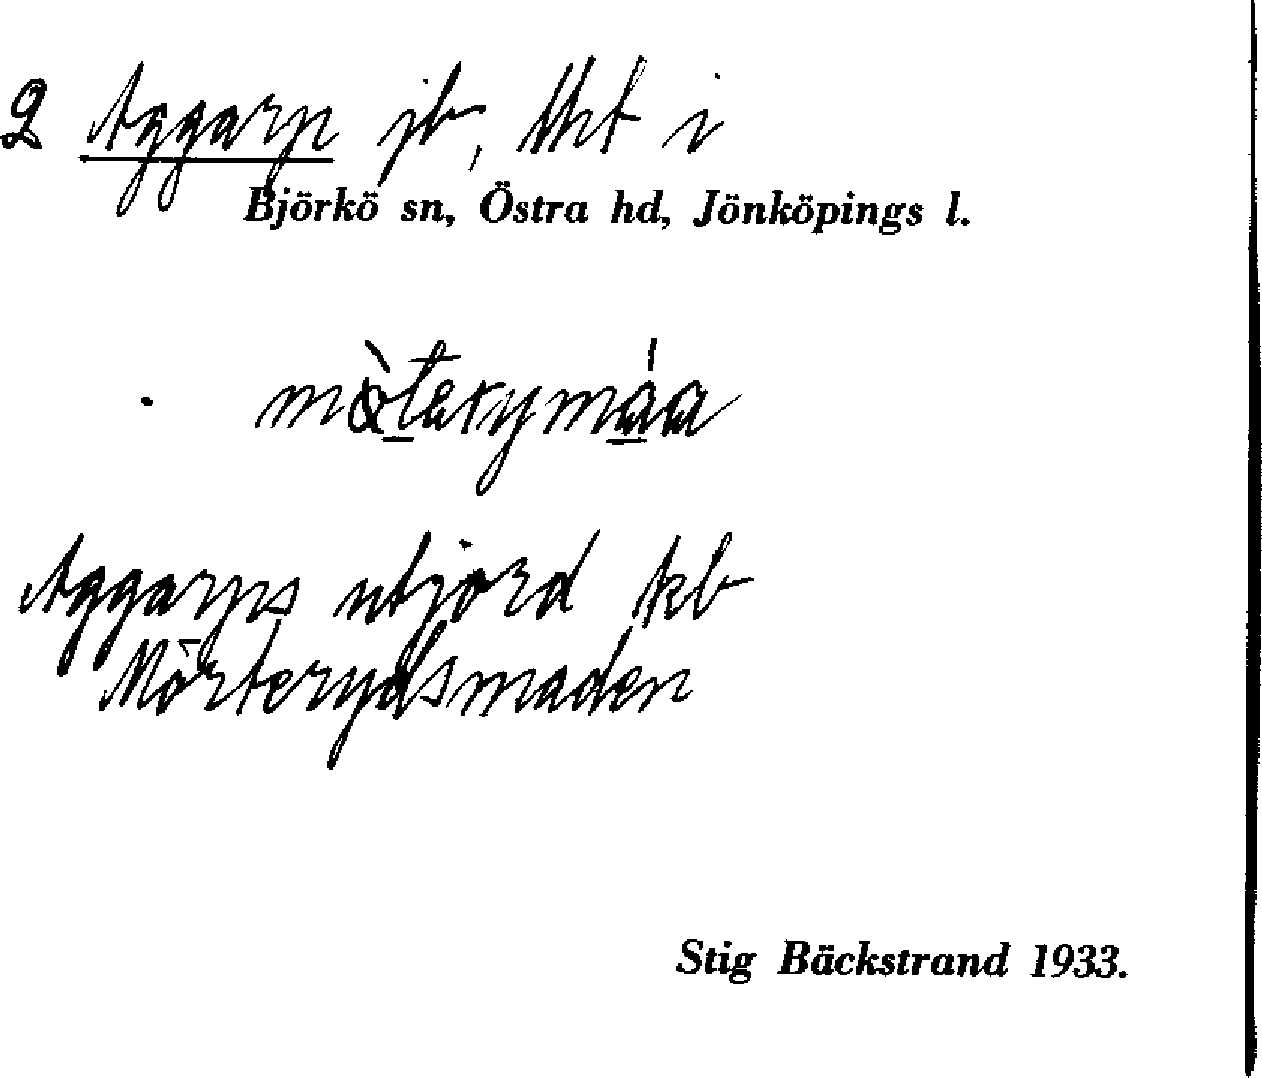 2 Aggarp jb, tht i
Björkö sn, Östra hd, Jönköpings l.
Aggarps utjord kb
Mörterydsmaden
Stig Bäckstrand 1933.